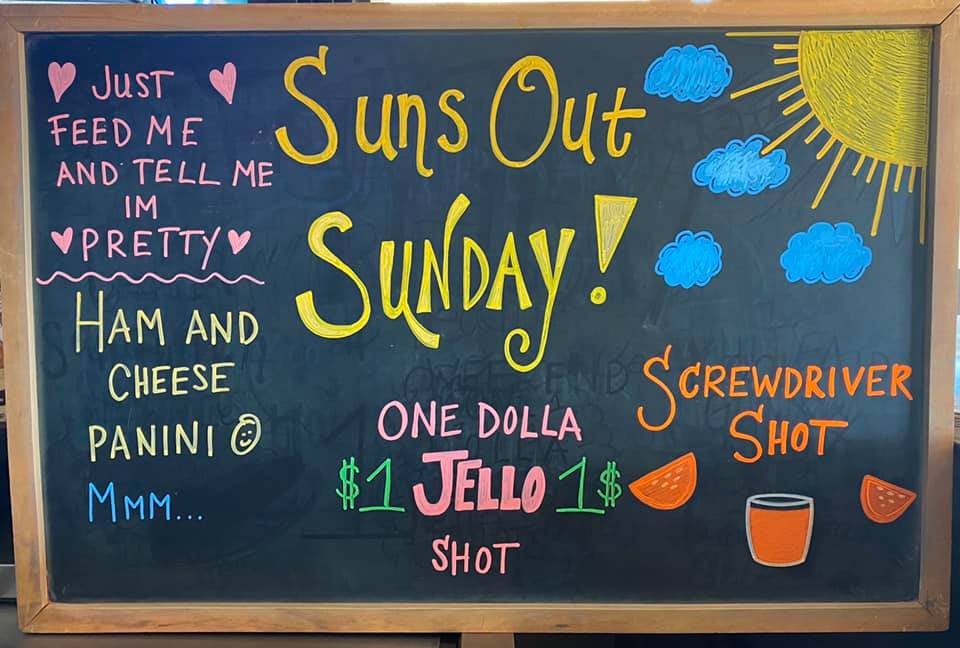 JUST
FEED ME
AND TELL ME
IM
PRETTY
HAM AND
CHEESE
PANINI
MMM...
Suns Out
SUNDAY!
ONE DOLLA
$1 JELLO 1$
SHOT
SCREWDRIVER
SHOT